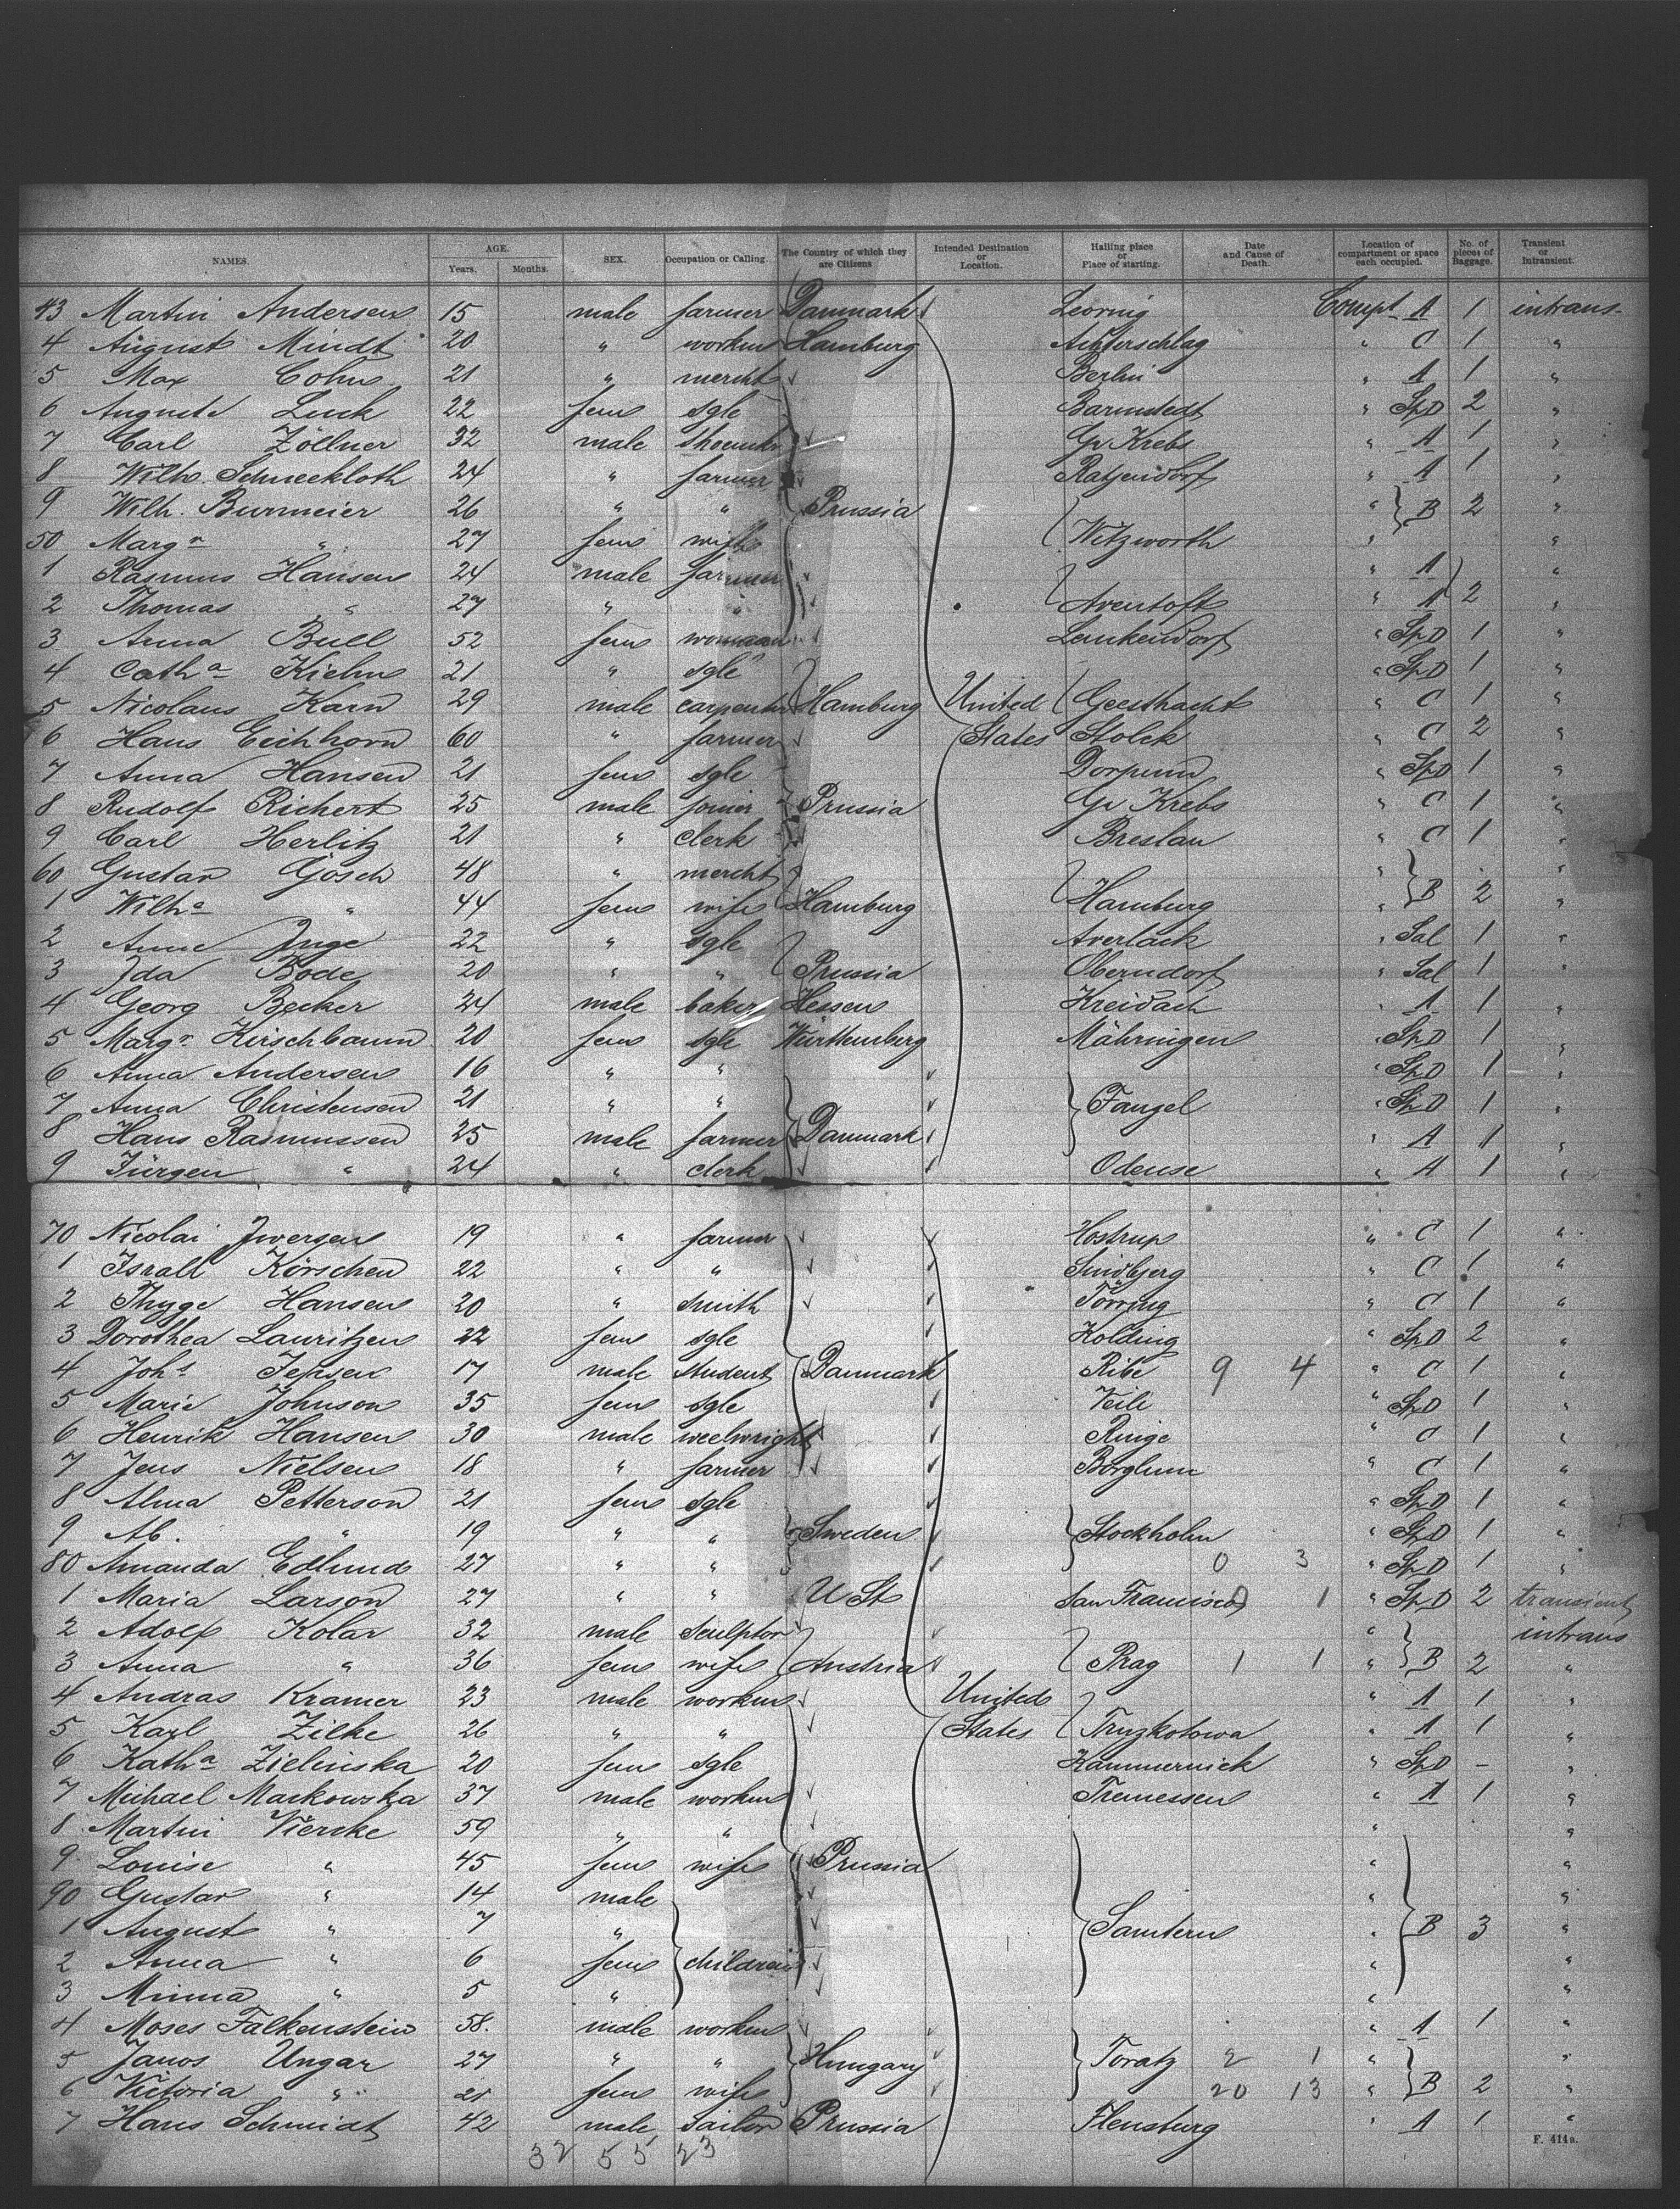 NAMES. AGE. Years. Months. SEX. Occupation or Calling. The Country of which they are Citizens Intended Destination or Location. Hailing place or Place of starting. Date and Cause of Death. Location of compartment or space each occupied. No. of pieces of Baggage. Transient or Intransient.
43 Martin Andersen 15 male farmer Danmark Leornig Compt A 1 intrans.
4 August Mindt 20 " worker Hamburg Achterschlag " C 1 "
5 Max Cohn 21 " mercht Berlin " A 1 "
6 Auguste Luck 22 fem sgle Barmstedt " SpD 2 "
7 Carl Zöllner 32 male Shoemkr Gr Krebs " A 1 "
8 Wilh. Schneekloth 24 " farmer Ratjendorf " A 1 "
9 Wilh. Burmeier 26 " " Prussia " B 2 "
50 Marg a " 27 fem wife Witzworth " "
1 Rasmus Hansen 24 male farmer " A "
2 Thomas " 27 " " Aventoft " A 2 "
3 Anna Bull 52 fem woman Lankendorf " SpD 1 "
4 Cath a Kiehn 21 " sgle " SpD 1 "
5 Nicolaus Karn 29 male carpenter Hamburg United Geesthacht " C 1 "
6 Hans Eichhorn 60 " farmer States Stolck " C 2 "
7 Anna Hansen 21 fem sgle Dorpum " SpD 1 "
8 Rudolf Richert 25 male joiner Prussia Gr Krebs " C 1 "
9 Carl Herlitz 21 " clerk Breslau " C 1 "
60 Gustav Gosch 48 " mercht "
1 Wilh a " 44 fem wife Hamburg Hamburg " B 2 "
2 Anne Inge 22 " sgle Averlack " Sal 1 "
3 Ida Bode 20 " " Prussia Oberndorf " Sal 1 "
4 Georg Becker 24 male baker Hessen Kreidach " A 1 "
5 Marg a Kirschbaum 20 fem sgle Württemberg Mähringen " SpD 1 "
6 Anna Andersen 16 " " " SpD 1 "
7 Anna Christensen 21 " " Fangel " SpD 1 "
8 Hans Rasmussen 25 male farmer Danmark " A 1 "
9 Jürgen " 24 " clerk Odense " A 1 "
70 Nicolai Iwersen 19 " farmer Hostrup " C 1 "
1 Israel Körschen 22 " " Sindbjerg " C 1 "
2 Thyge Hansen 20 " smith Törring " C 1 "
3 Dorothea Lauritzen 22 fem sgle Kolding " SpD 2 "
4 Joh s Jepsen 17 male student Danmark Ribe 9 4 " C 1 "
5 Marie Johnson 35 fem sgle Veile " SpD 1 "
6 Henrik Hansen 30 male weelwright Ringe " C 1 "
7 Jens Nielsen 18 " farmer Börglum " C 1 "
8 Alma Petterson 21 fem sgle " SpD 1 "
9 Ab. " 19 " " Sweden Stockholm " SpD 1 "
80 Amanda Edlund 27 " " 0 3 " SpD 1 "
1 Maria Larson 27 " " U St San Francisco 0 1 " SpD 2 transient
2 Adolf Kolar 32 male sculptor " intrans
3 Anna " 36 fem wife Austria Prag 1 1 " B 2 "
4 Andras Kramer 23 male worker United " A 1 "
5 Karl Zilke 26 " " States Truzkolowa " A 1 "
6 Kath a Zielinska 20 fem sgle Kammernick " SpD - "
7 Michael Markowska 37 male worker Tremessen " A 1 "
8 Martin Viercke 59 " " " "
9 Louise " 45 fem wife Prussia " "
90 Gustav " 14 male " "
1 August " 7 " Samtern " B 3 "
2 Anna " 6 fem children " "
3 Minna " 5 " " "
4 Moses Falkenstein 58. male worker " A 1 "
5 Janos Ungar 27 " " Hungary Toratz 2 1 " "
6 Victoria " 21 fem wife 20 13 " B 2 "
7 Hans Schmidt 42 male sailor Prussia Flensburg " A 1 "
32 55 23 F. 414a.